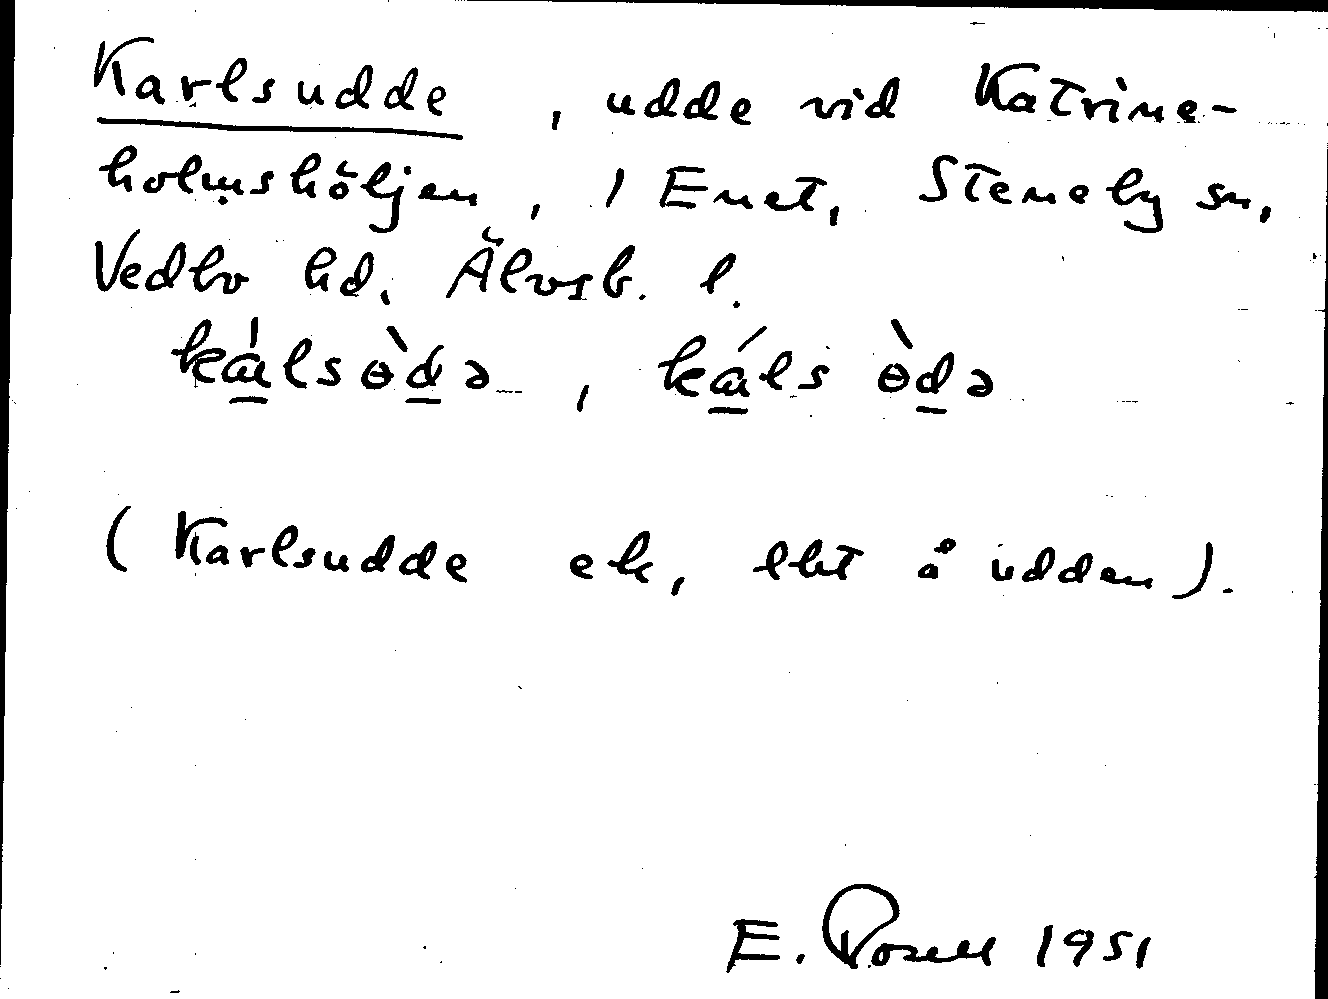 Karlsudde, udde vid Katrine-
holmshöljen, i Enet, Steneby sn,
Vedbo hd. Älvsb. l.
ká̱lsɵ̀ḏə, ká̱ls ɵ̀ḏə
(Karlsudde ek, lht å udden).
E. Rosell 1951